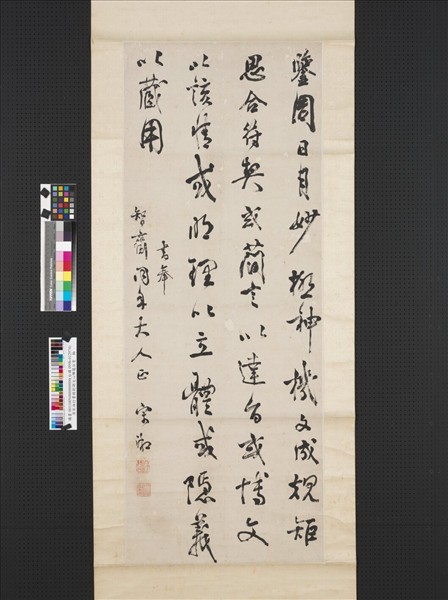 鑒周日月妙極神機文成規矩
思合符契或簡言以達旨或博文
以該情或明理以立體或隱義
以藏用
書奉
智齋同年大人正